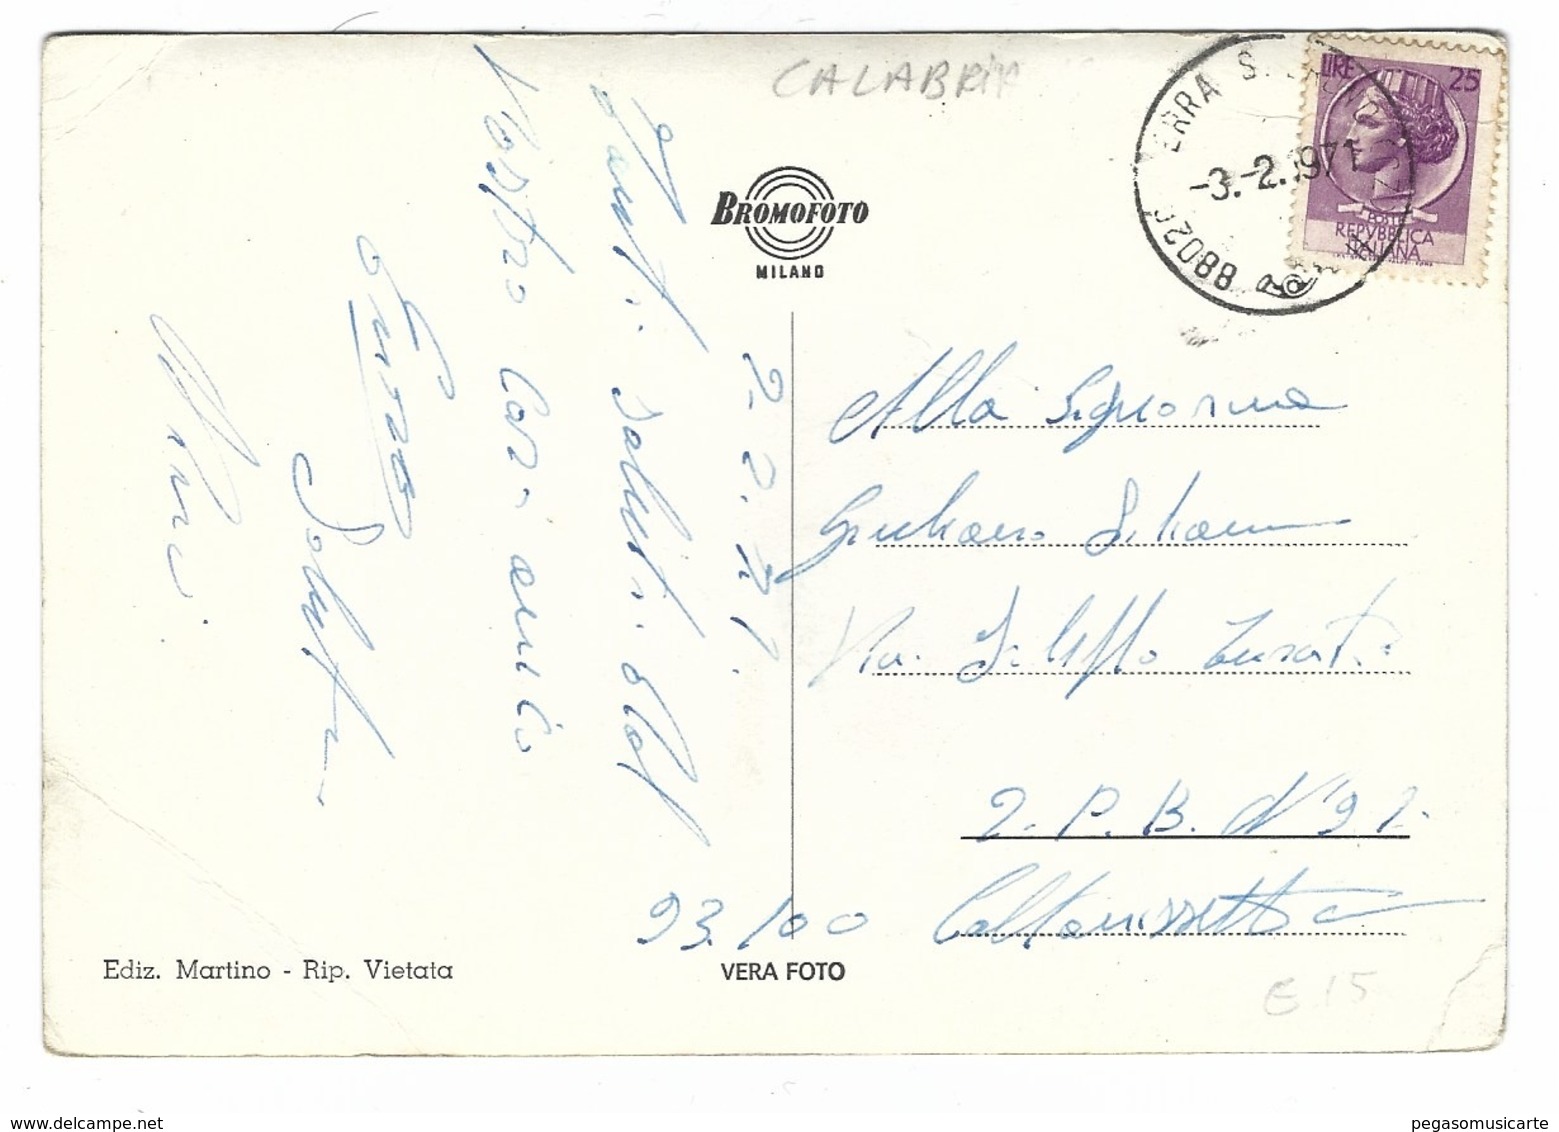 CALABRIA
LIRE 25
POSTE
REPVBBLICA
ITALIANA
SERRA S.
-3.-2.1971
88020
BROMOFOTO
MILANO
2.2.71.
saluti dal
Vostro Caro amico
Enzo
Saluti
Alla Signorina
Giuliano
Via Filippo Turati
2. P. B. N° 92.
93.100 Caltanissetta
Ediz. Martino - Rip. Vietata
VERA FOTO
€ 15
www.delcampe.net
pegasomusicarte